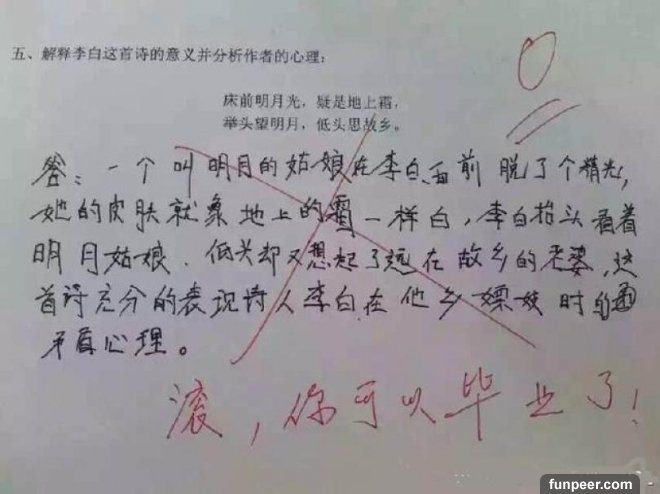 五、解释李白这首诗的意义并分析作者的心理:
床前明月光，疑是地上霜，
举头望明月，低头思故乡。
0
答：一个叫明月的姑娘在李白面前脱了个精光，
她的皮肤就象地上的霜一样白，李白抬头看着
明月姑娘．低头却又想起了远在故乡的老婆，这
首诗充分的表现诗人李白在他乡嫖妓时的
矛盾心理。
滚，你可以毕业了！
funpeer.com